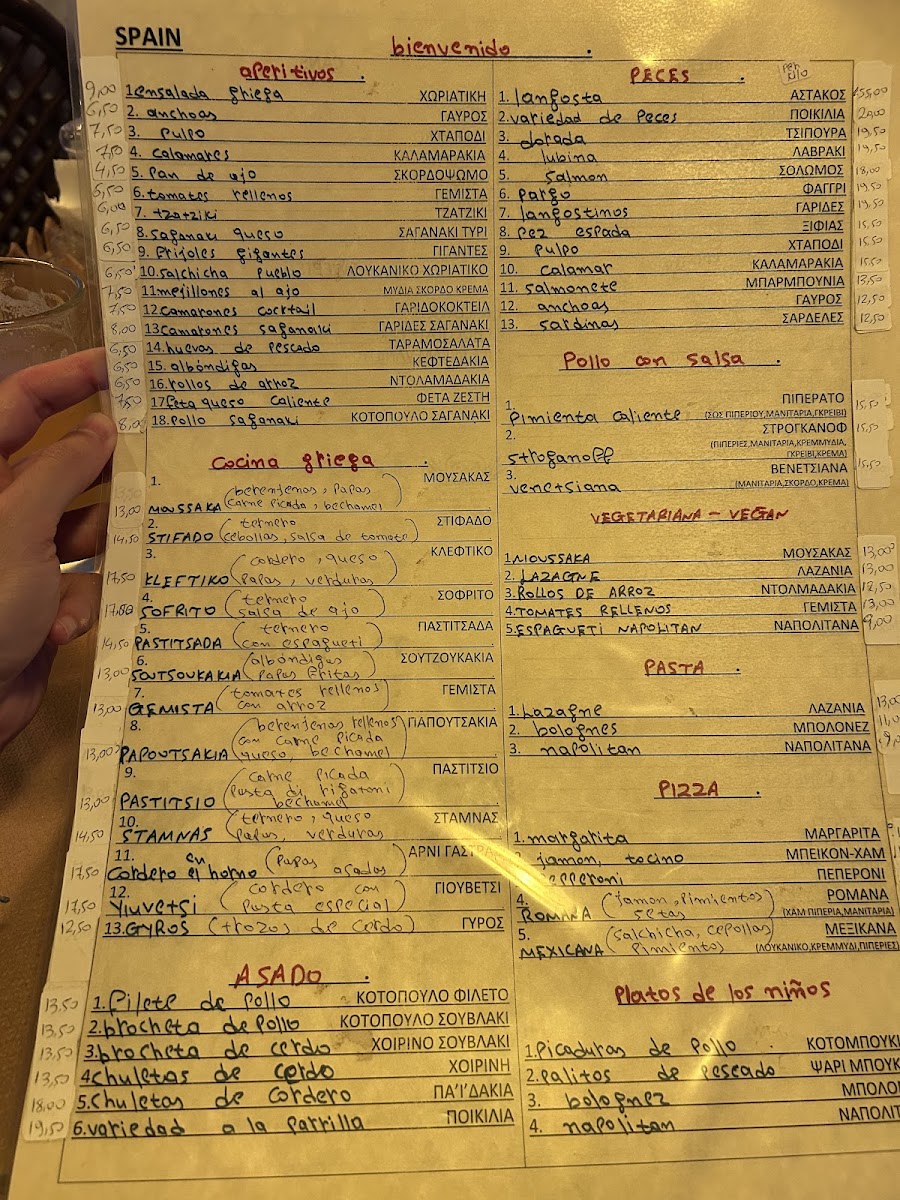 SPAIN
bienvenido .
aperitivos .
9,00 1ensalada griega ΧΩΡΙΑΤΙΚΗ
6,50 2. anchoas ΓΑΥΡΟΣ
7,50 3. pulpo ΧΤΑΠΟΔΙ
7,50 4. calamares ΚΑΛΑΜΑΡΑΚΙΑ
4,50 5. pan de ajo ΣΚΟΡΔΟΨΩΜΟ
5,50 6. tomates rellenos ΓΕΜΙΣΤΑ
6,00 7. tzatziki ΤΖΑΤΖΙΚΙ
6,50 8. saganaki queso ΣΑΓΑΝΑΚΙ ΤΥΡΙ
6,50 9. frijoles gigantes ΓΙΓΑΝΤΕΣ
6,50 10. salchicha pueblo ΛΟΥΚΑΝΙΚΟ ΧΩΡΙΑΤΙΚΟ
7,50 11mejillones al ajo ΜΥΔΙΑ ΣΚΟΡΔΟ ΚΡΕΜΑ
7,50 12camarones cocktail ΓΑΡΙΔΟΚΟΚΤΕΙΛ
8,00 13camarones saganaki ΓΑΡΙΔΕΣ ΣΑΓΑΝΑΚΙ
6,50 14.huevas de pescado ΤΑΡΑΜΟΣΑΛΑΤΑ
6,50 15. albóndigas ΚΕΦΤΕΔΑΚΙΑ
6,50 16.rollos de arroz ΝΤΟΛΑΜΑΔΑΚΙΑ
7,50 17feta queso caliente ΦΕΤΑ ΖΕΣΤΗ
8,00 18.pollo saganaki ΚΟΤΟΠΟΥΛΟ ΣΑΓΑΝΑΚΙ
Cocina griega .
1. ΜΟΥΣΑΚΑΣ
(berenjenas, papas
13,00 MOUSSAKA carne picada, bechamel)
2. (ternero ΣΤΙΦΑΔΟ
14,50 STIFADO cebollas, salsa de tomate)
3. (cordero, queso ΚΛΕΦΤΙΚΟ
17,50 KLEFTIKO papas, verduras)
4. (ternero ΣΟΦΡΙΤΟ
17,00 SOFRITO salsa de ajo)
5. (ternero ΠΑΣΤΙΤΣΑΔΑ
14,50 PASTITSADA con espagueti)
6. (albóndigas ΣΟΥΤΖΟΥΚΑΚΙΑ
13,00 SOUTSOUKAKIA papas fritas)
7. (tomates rellenos ΓΕΜΙΣΤΑ
13,00 GEMISTA con arroz)
8. (berenjenas rellenos ΠΑΠΟΥΤΣΑΚΙΑ
con carne picada
13,00 PAPOUTSAKIA queso, bechamel)
9. (carne picada ΠΑΣΤΙΤΣΙΟ
pasta di rigatoni
13,00 PASTITSIO bechamel)
10. (ternero, queso ΣΤΑΜΝΑΣ
14,50 STAMNAS papas, verduras)
11. en (papas ΑΡΝΙ
17,50 Cordero el horno asados)
12. (cordero con ΓΙΟΥΒΕΤΣΙ
17,50 Yiuvetsi pasta especial)
12,50 13.GYROS (trozos de cerdo) ΓΥΡΟΣ
ASADO .
13,50 1.filete de pollo ΚΟΤΟΠΟΥΛΟ ΦΙΛΕΤΟ
13,50 2.brocheta de pollo ΚΟΤΟΠΟΥΛΟ ΣΟΥΒΛΑΚΙ
13,50 3.brocheta de cerdo ΧΟΙΡΙΝΟ ΣΟΥΒΛΑΚΙ
13,50 4chuletas de cerdo ΧΟΙΡΙΝΗ
18,00 5.chuletas de cordero ΠΑ'Ι'ΔΑΚΙΑ
19,50 6.variedad a la parrilla ΠΟΙΚΙΛΙΑ
PECES . PER KILO
1. langosta ΑΣΤΑΚΟΣ 55,00
2.variedad de peces ΠΟΙΚΙΛΙΑ
3. dorada ΤΣΙΠΟΥΡΑ 19,50
4. lubina ΛΑΒΡΑΚΙ 19,50
5. salmon ΣΟΛΩΜΟΣ 18,00
6. pargo ΦΑΓΓΡΙ 19,50
7. langostinos ΓΑΡΙΔΕΣ 19,50
8. pez espada ΞΙΦΙΑΣ 15,50
9. pulpo ΧΤΑΠΟΔΙ 15,50
10. calamar ΚΑΛΑΜΑΡΑΚΙΑ 15,50
11. salmonete ΜΠΑΡΜΠΟΥΝΙΑ 13,50
12. anchoas ΓΑΥΡΟΣ 12,50
13. sardinas ΣΑΡΔΕΛΕΣ 12,50
Pollo con salsa .
1. ΠΙΠΕΡΑΤΟ 15,50
pimienta caliente (ΣΩΣ ΠΙΠΕΡΙΟΥ,ΜΑΝΙΤΑΡΙΑ,ΓΚΡΕΙΒΙ)
2. ΣΤΡΟΓΚΑΝΟΦ 15,50
(ΠΙΠΕΡΙΕΣ,ΜΑΝΙΤΑΡΙΑ,ΚΡΕΜΜΥΔΙΑ,
stroganoff ΓΚΡΕΙΒΙ,ΚΡΕΜΑ)
3. ΒΕΝΕΤΣΙΑΝΑ 15,50
venetsiana (ΜΑΝΙΤΑΡΙΑ,ΣΚΟΡΔΟ,ΚΡΕΜΑ)
VEGETARIANA - VEGAN
1.MOUSSAKA ΜΟΥΣΑΚΑΣ 13,00
2. LAZAGNE ΛΑΖΑΝΙΑ 13,00
3.ROLLOS DE ARROZ ΝΤΟΛΜΑΔΑΚΙΑ 12,50
4.TOMATES RELLENOS ΓΕΜΙΣΤΑ 13,00
5.ESPAGUETI NAPOLITAN ΝΑΠΟΛΙΤΑΝΑ 9,00
PASTA .
1.Lazagne ΛΑΖΑΝΙΑ 13,00
2. bolognes ΜΠΟΛΟΝΕΖ
3. napolitan ΝΑΠΟΛΙΤΑΝΑ
PIZZA .
1.margarita ΜΑΡΓΑΡΙΤΑ
jamon, tocino ΜΠΕΙΚΟΝ-ΧΑΜ
ΠΕΠΕΡΟΝΙ
4. (jamon, pimientos ΡΟΜΑΝΑ
ROMANA setas) (ΧΑΜ ΠΙΠΕΡΙΑ,ΜΑΝΙΤΑΡΙΑ)
5. (salchicha, cepollas ΜΕΞΙΚΑΝΑ
MEXICANA pimientos) (ΛΟΥΚΑΝΙΚΟ,ΚΡΕΜΜΥΔΙ,ΠΙΠΕΡΙΕΣ)
Platos de los niños
1.picaduras de pollo . ΚΟΤΟΜΠΟΥΚΙ
2.palitos de pescado ΨΑΡΙ ΜΠΟΥΚ
3. bolognez ΜΠΟΛΟ
4. napolitan ΝΑΠΟΛΙΤ